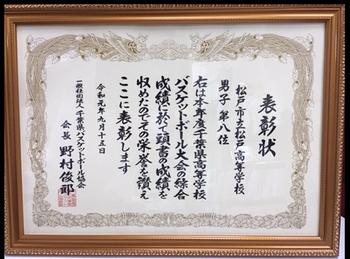 表彰状
松戸市立松戸高等学校
男子 第八位
右は本年度千葉県高等学校
バスケットボール大会の綜合
成績に於て頭書の成績を
収めたのでその栄誉を讃え
ここに表彰します
令和元年九月十五日
一般社団法人 千葉県バスケットボール協会
会長 野村俊郎